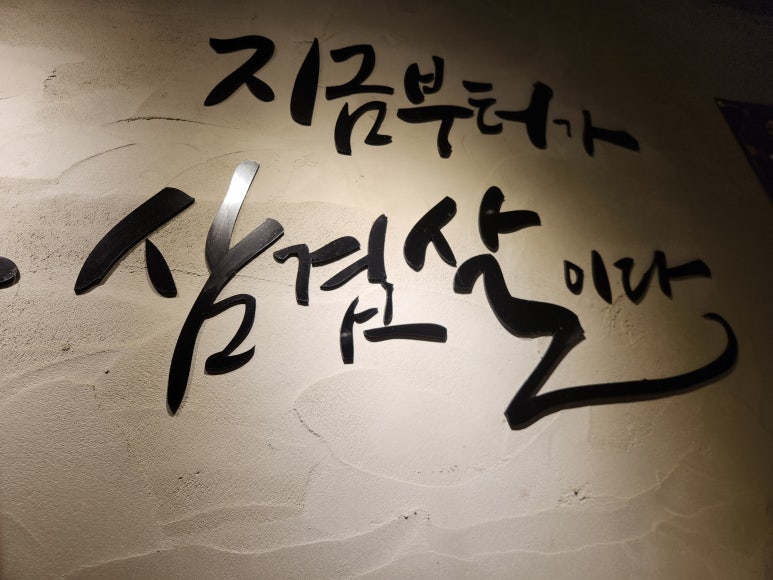 지금부터가
삼겹살이다